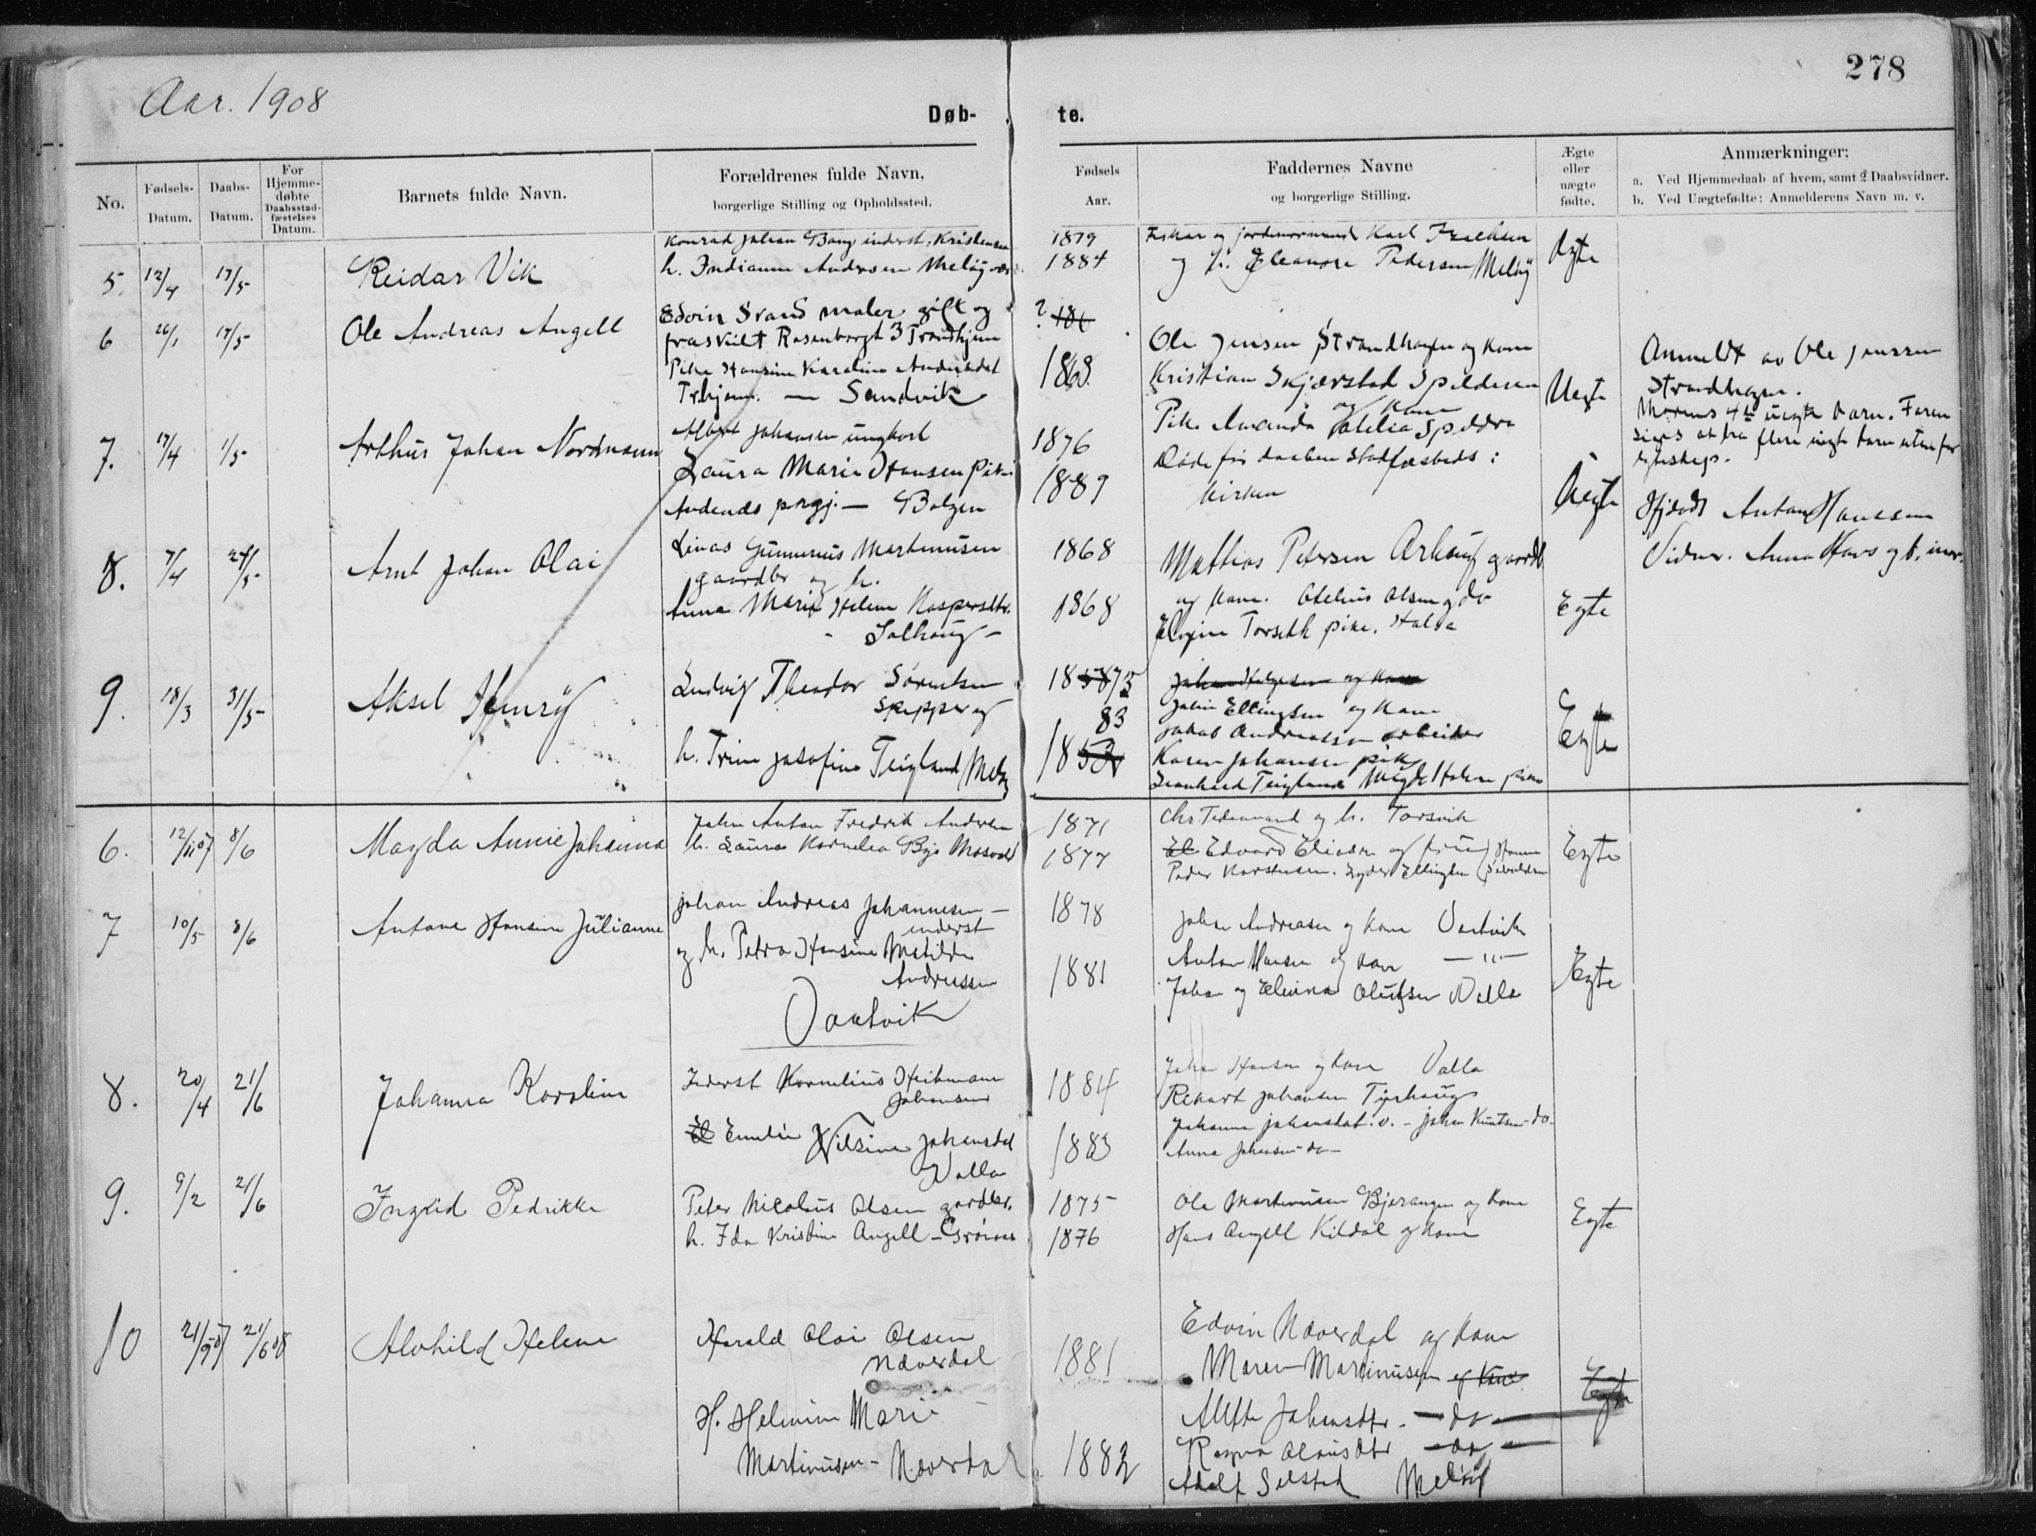 Aar. 1908
278
Døb- te.
No.
Fødsels-Datum.
Daabs-Datum.
For Hjemme-døbte Daabsstad-fæstelses Datum.
Barnets fulde Navn.
Forældrenes fulde Navn,
borgerlige Stilling og Opholdssted.
Fødsels Aar.
Faddernes Navne
og borgerlige Stilling.
Ægte eller uægte fødte.
Anmærkninger:
a. Ved Hjemmedaab af hvem, samt 2 Daabsvidner.
b. Ved Uægtefødte: Anmelderens Navn m. v.
5. 12/4 17/5 Reidar Vik
Konrad Johan Bang inderst. Kristensen
h. Indianna Andersen Meløyvær
1879
1884
Fisker og jordmormand Karl
og h. Eleanore Pedersen Meløy
Ægte
6 26/1 17/5 Ole Andreas Angell
Edvin Svand maler gift og
fraskilt Rosenborgt 3 Trondhjem
Pike Hansine Karoline Andersdat
Trhjem. — Sandvik
?
1868
Ole Jensen Strandhagen og kone
Kristian Skjærstad Spilderen
og kone
Pike Amanda Spildra
Uegte
Anmeldt av Ole Jenssen
Strandhagen.
Morens 4de uegte barn. Faren
siges at ha flere uegte barn uten for
egteskap.
7. 17/4 1/5 Arthur Johan Nordmann
Albert Johansen ungkarl
Laura Marie Hansen pike
Andenes prgj. — Bolgen
1876
1889
Døde før daaben stadfæsteds i
kirken
Uegte
Hjdøbt Anton Hanssen
Vidner. Anna Havs og b. mor.
8. 7/4 24/5 Arnt Johan Olai
Linas Gunnerius Martinusen
gaardbr og h.
Anna Marie Helene Kaspersdtr.
- Solhaug -
1868
1868
Mathias Petersen Arhaug gaardb
og kone. Otelius Olsen og do
Elvine Torseth pike. Halsa
Egte
9. 18/3 31/5 Aksel Henry
Ludvig Theodor Sørentsen
Skipper og
h. Trine Josofine Teigland Meløy
1858 73
83
1853
Johan Helgesen og kone
John Ellingsen og kone
Jakob Andreassen arbeider
Karen Johansen pike
Leonhard Teigland Magda Holm pike
Egte
6. 12/11 07 8/6 Magda Annie Johanna
John Anton Fredrik Andersen
h. Laura Kornelia Bye Mosvold
1871
1877
Chr Ferdinand og h. Torsvik
El Edvard Eliasen og frue Hanna
Peder Karstensen. Ellingsen Sivaldsen
Egte
7 10/5 8/6 Antone Hansine Julianne
Johan Andreas Johannesen —
inderst
og h. Petra Hansine Matilde
Andreassen
Vaatvik
1878
1881
Johan Andreasen og kone Vaatvik
Anton Hansen og kone — " —
Johan og Elvina Olufsen Valla
Egte
8. 20/4 21/6 Johanna Karoline
Inderst Kornelius Heitmann
Johansen
El Emelie Nilsine Johansdat
Valla
1884
1883
Johan Hansen og kone Valla
Rikart Johansen Tjerhaug
Johanna Johansdat. v. - Johan Knutsen - do.
Anna Johansen - do —
9. 9/2 21/6 Ingrid Pedrikke
Peter Nicolaus Olsen gardbr.
h. Ida Kristine Angell - Grønnes
1875
1876
Ole Martinusen Bjerangen og kone
Hans Angell Kildal og kone
Egte
10 21/9 07 21/6 08 Alvhild Helene
Harald Olai Olsen
Næverdal
H. Helmine Marie
Martinusen - Næverdal
1881
1882
Edvin Næverdal og kone
Maren Martinusen og kone
Alette Johansdtr. — do —
Ragna Olausdtr — do —
Adolf Selstad Meløy
Egte